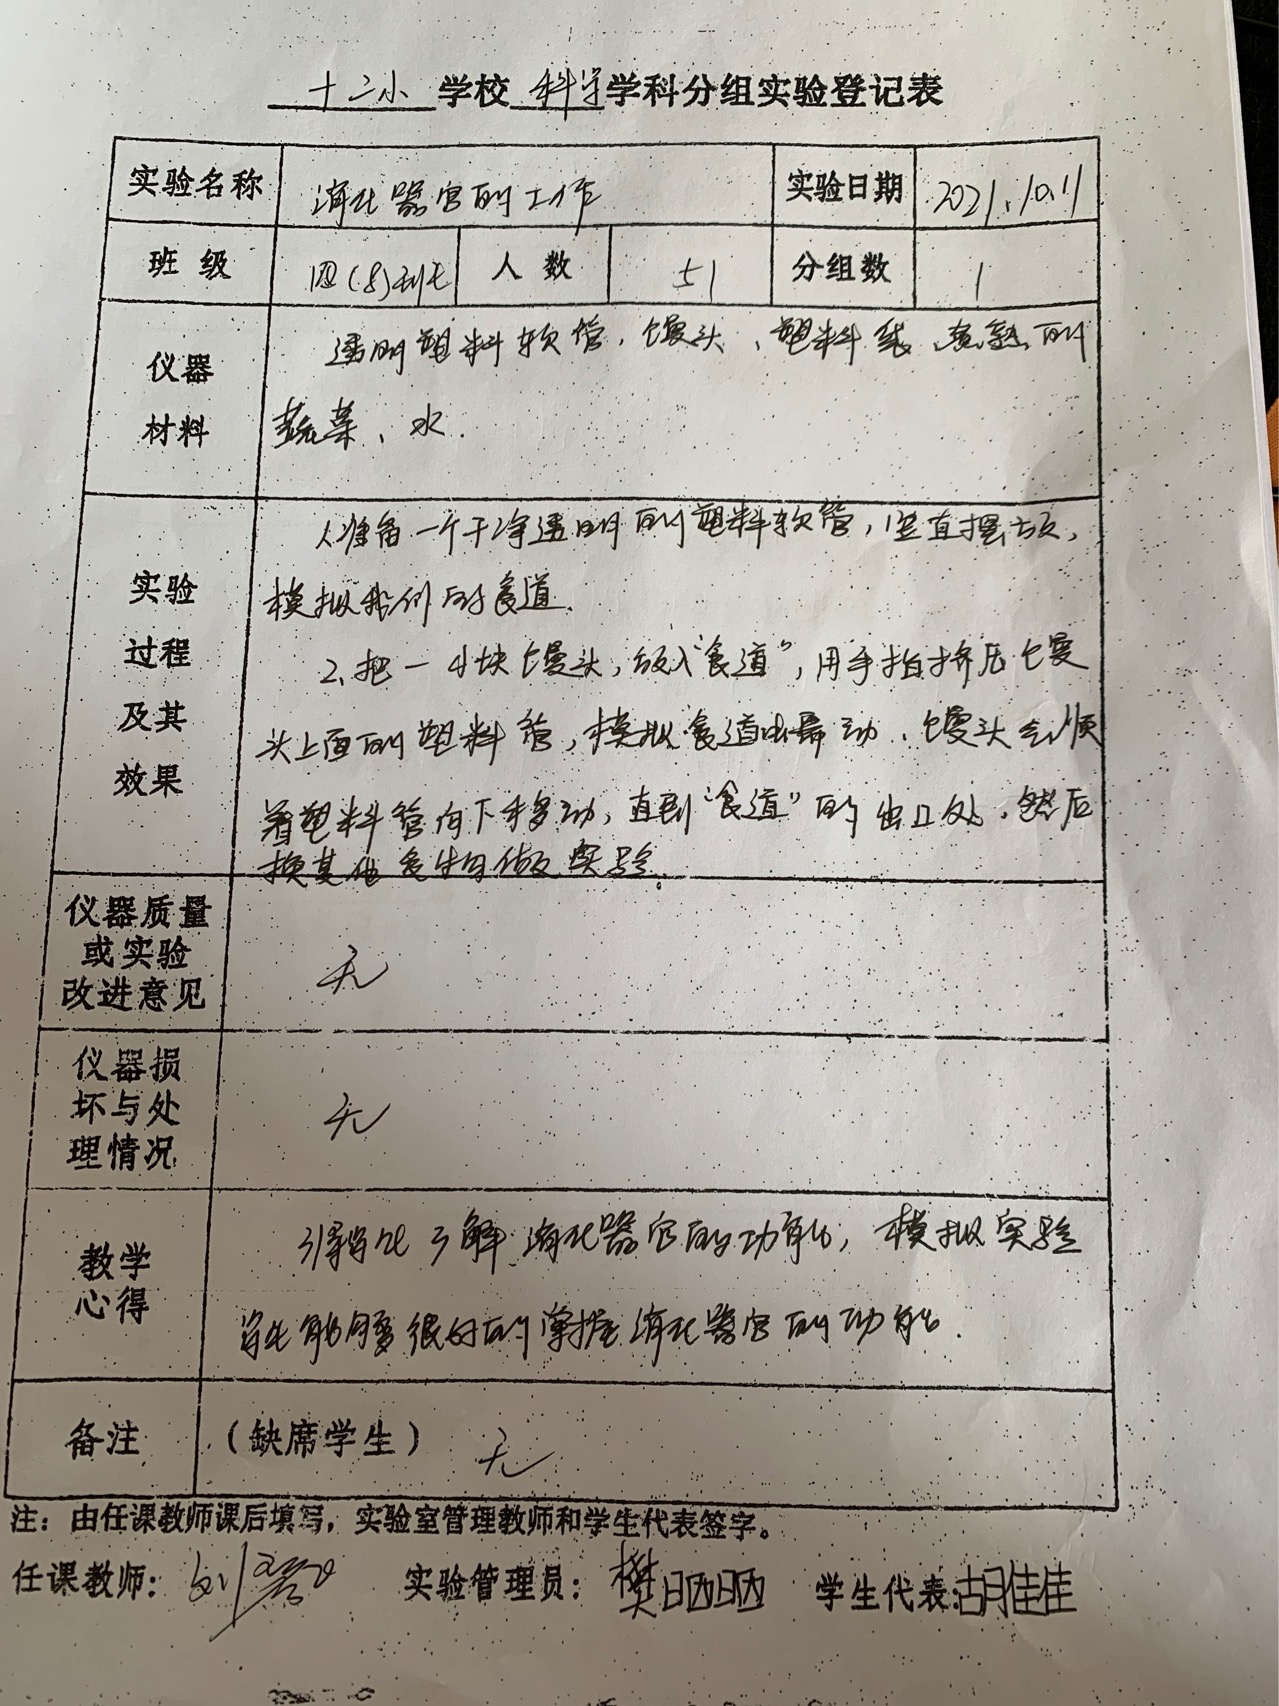 十二小 学校 科学 学科分组实验登记表
实验名称 消化器官的工作 实验日期 2021.10.11
班 级 四(8)班 人 数 51 分组数 1
仪器
材料
透明塑料软管、馒头、塑料线、煮熟的
蔬菜、水.
实验
过程
及其
效果
1.准备一个干净透明的塑料软管，竖直摆放，
模拟我们的食道.
2.把一小块馒头，放入“食道”，用手指挤压馒
头上面的塑料管，模拟食道蠕动、馒头会顺
着塑料管向下移动，直到“食道”的出口处、然后
换其他食物做实验.
仪器质量
或实验
改进意见
无
仪器损
坏与处
理情况
无
教学
心得
学生了解消化器官的功能，模拟实验
学生能够很好的掌握消化器官的功能.
备注 (缺席学生) 无
注：由任课教师课后填写，实验室管理教师和学生代表签字。
任课教师：刘 实验管理员：樊晒晒 学生代表:胡佳佳